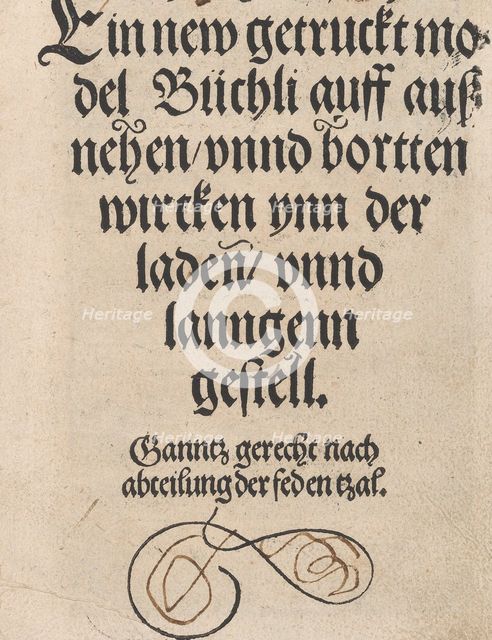 Ein new getruckt mo
del Büchli auff auß
nehen/ vnnd bortten
wircken ynn der
laden/ vnnd
lanngenn
gestell.
Ganntz gerecht nach
abteilung der feden tzal.
Heritage Heritage
Heritage Heritage
Heritage Heritage